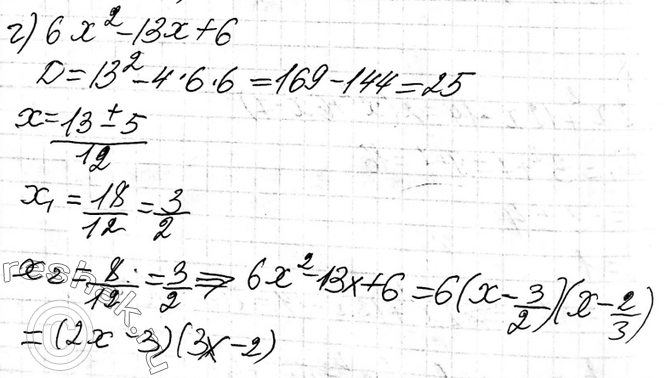 г) 6x² - 13x + 6
D = 13² - 4·6·6 = 169 - 144 = 25
x = (13 ± 5)/12
x₁ = 18/12 = 3/2
x₂ = 8/12 = 3/2 ⇒ 6x² - 13x + 6 = 6(x - 3/2)(x - 2/3)
= (2x - 3)(3x - 2)